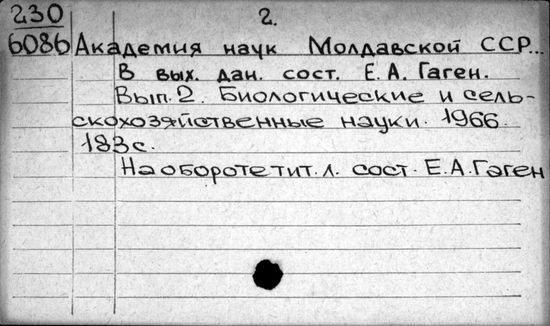 230 2.
6086 Академия наук Молдавской ССР...
В вых. дан. сост. Е. А. Гаген.
Вып. 2. Биологические и сель-
скохозяйственные науки. 1966.
183 с.
На обороте тит. л. сост. Е. А. Гаген